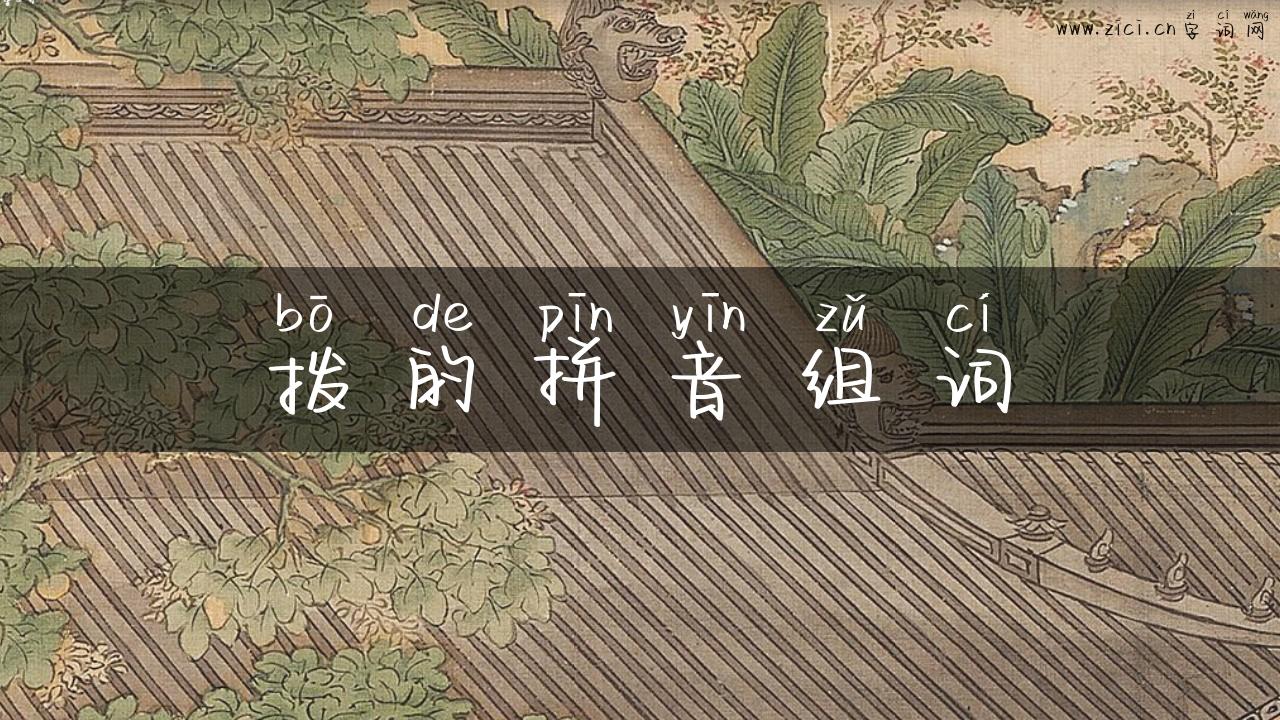 zì cí wǎng
www.zici.cn 字词网
bō de pīn yīn zǔ cí
拨的拼音组词